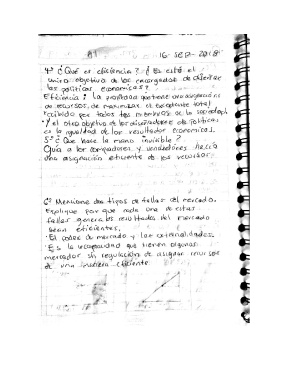 A1 16-SEP-2018
4° ¿Que es eficiencia? ¿Es este el
unico objetivo de los encargados de diseñar
las politicas economicas?
Eficiencia: la propiedad que tiene una asignación
de recursos, de maximizar el excedente total
recibido por todos los miembros de la sociedad.
Y el otro objetivo de los diseñadores de politicas
es la igualdad de los resultados economicos.
5° ¿Que hace la mano "invisible"?
Guia a los compradores y vendedores hacia
una asignación eficiente de los recursos.
6° Mencione dos tipos de fallas del mercado.
Explique por que cada una de estas
fallas genera los resultados del mercado
sean eficientes.
El poder de mercado y las externalidades.
Es la incapacidad que tienen algunos
mercados sin regulación de asignar recursos
de una manera eficiente.